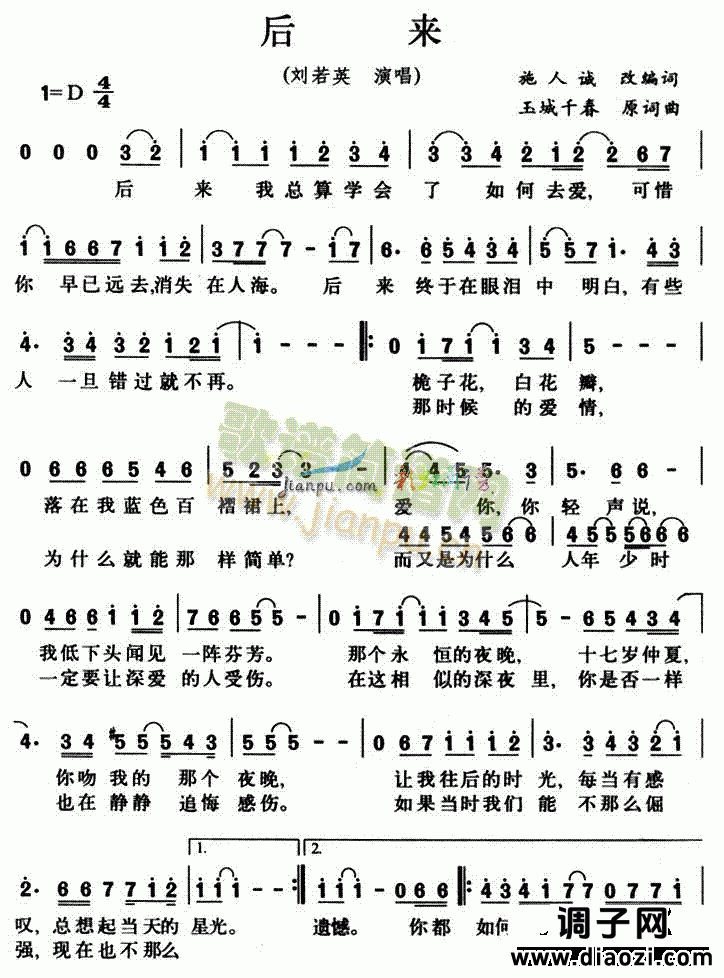 后 来
(刘若英 演唱)
1=D 4/4
施人诚 改编词
玉城千春 原词曲
0 0 0 3 2 | 1 1 1 1 2 3 4 | 3 3 4 2 1 2 2 6 7
后 来 我总算学会 了 如何去爱，可惜
1 1 6 6 7 1 1 2 | 3 7 7 7 - 1 7 | 6· 6 5 4 3 4 | 5 5 7 1· 4 3
你 早已远去,消失 在人海。 后 来 终于在眼泪中 明白,有些
4· 3 4 3 2 1 2 1 | 1 - - - |: 0 1 7 1 1 3 4 | 5 - - -
人 一旦错过就不再。 桅子花，白花瓣，
那时候 的爱情，
0 6 6 6 6 5 4 6 | 5 2 3 3 - | 4 4 5 5· 3 | 5· 6 6 -
落在我蓝色百 褶裙上， 爱 你,你 轻声说，
4 4 5 4 5 6 6 | 4 5 5 5 6 6 6
为什么就能那 样简单? 而又是为什么 人年 少时
0 4 6 6 1 1 2 | 7 6 6 5 5 - | 0 1 7 1 1 1 3 4 5 | 5 - 6 5 4 3 4
我低下头闻见 一阵芬芳。 那个永 恒的夜晚， 十七岁仲夏，
一定要让深爱 的人受伤。 在这相 似的深夜 里，你是否一样
4· 3 4 #5 5 5 4 3 | 5 5 5 - - | 0 6 7 1 1 1 2 | 3· 3 4 3 2 1
你吻 我的 那个 夜晚， 让我往后的时 光，每当有感
也在 静静 追悔 感伤。 如果当时我们 能 不那么倔
1. 2.
2· 6 6 7 7 1 2 | 1 1 1 - - :| 1 1 1 - 0 6 6 :| 4 3 4 1 7 7 0 7 7
叹，总想起当天的 星光。 遗憾。 你都 如何
强，现在也不那么
歌谱简谱网
jianpu.com
www.jianpu.cn
调子网
www.diaozi.com